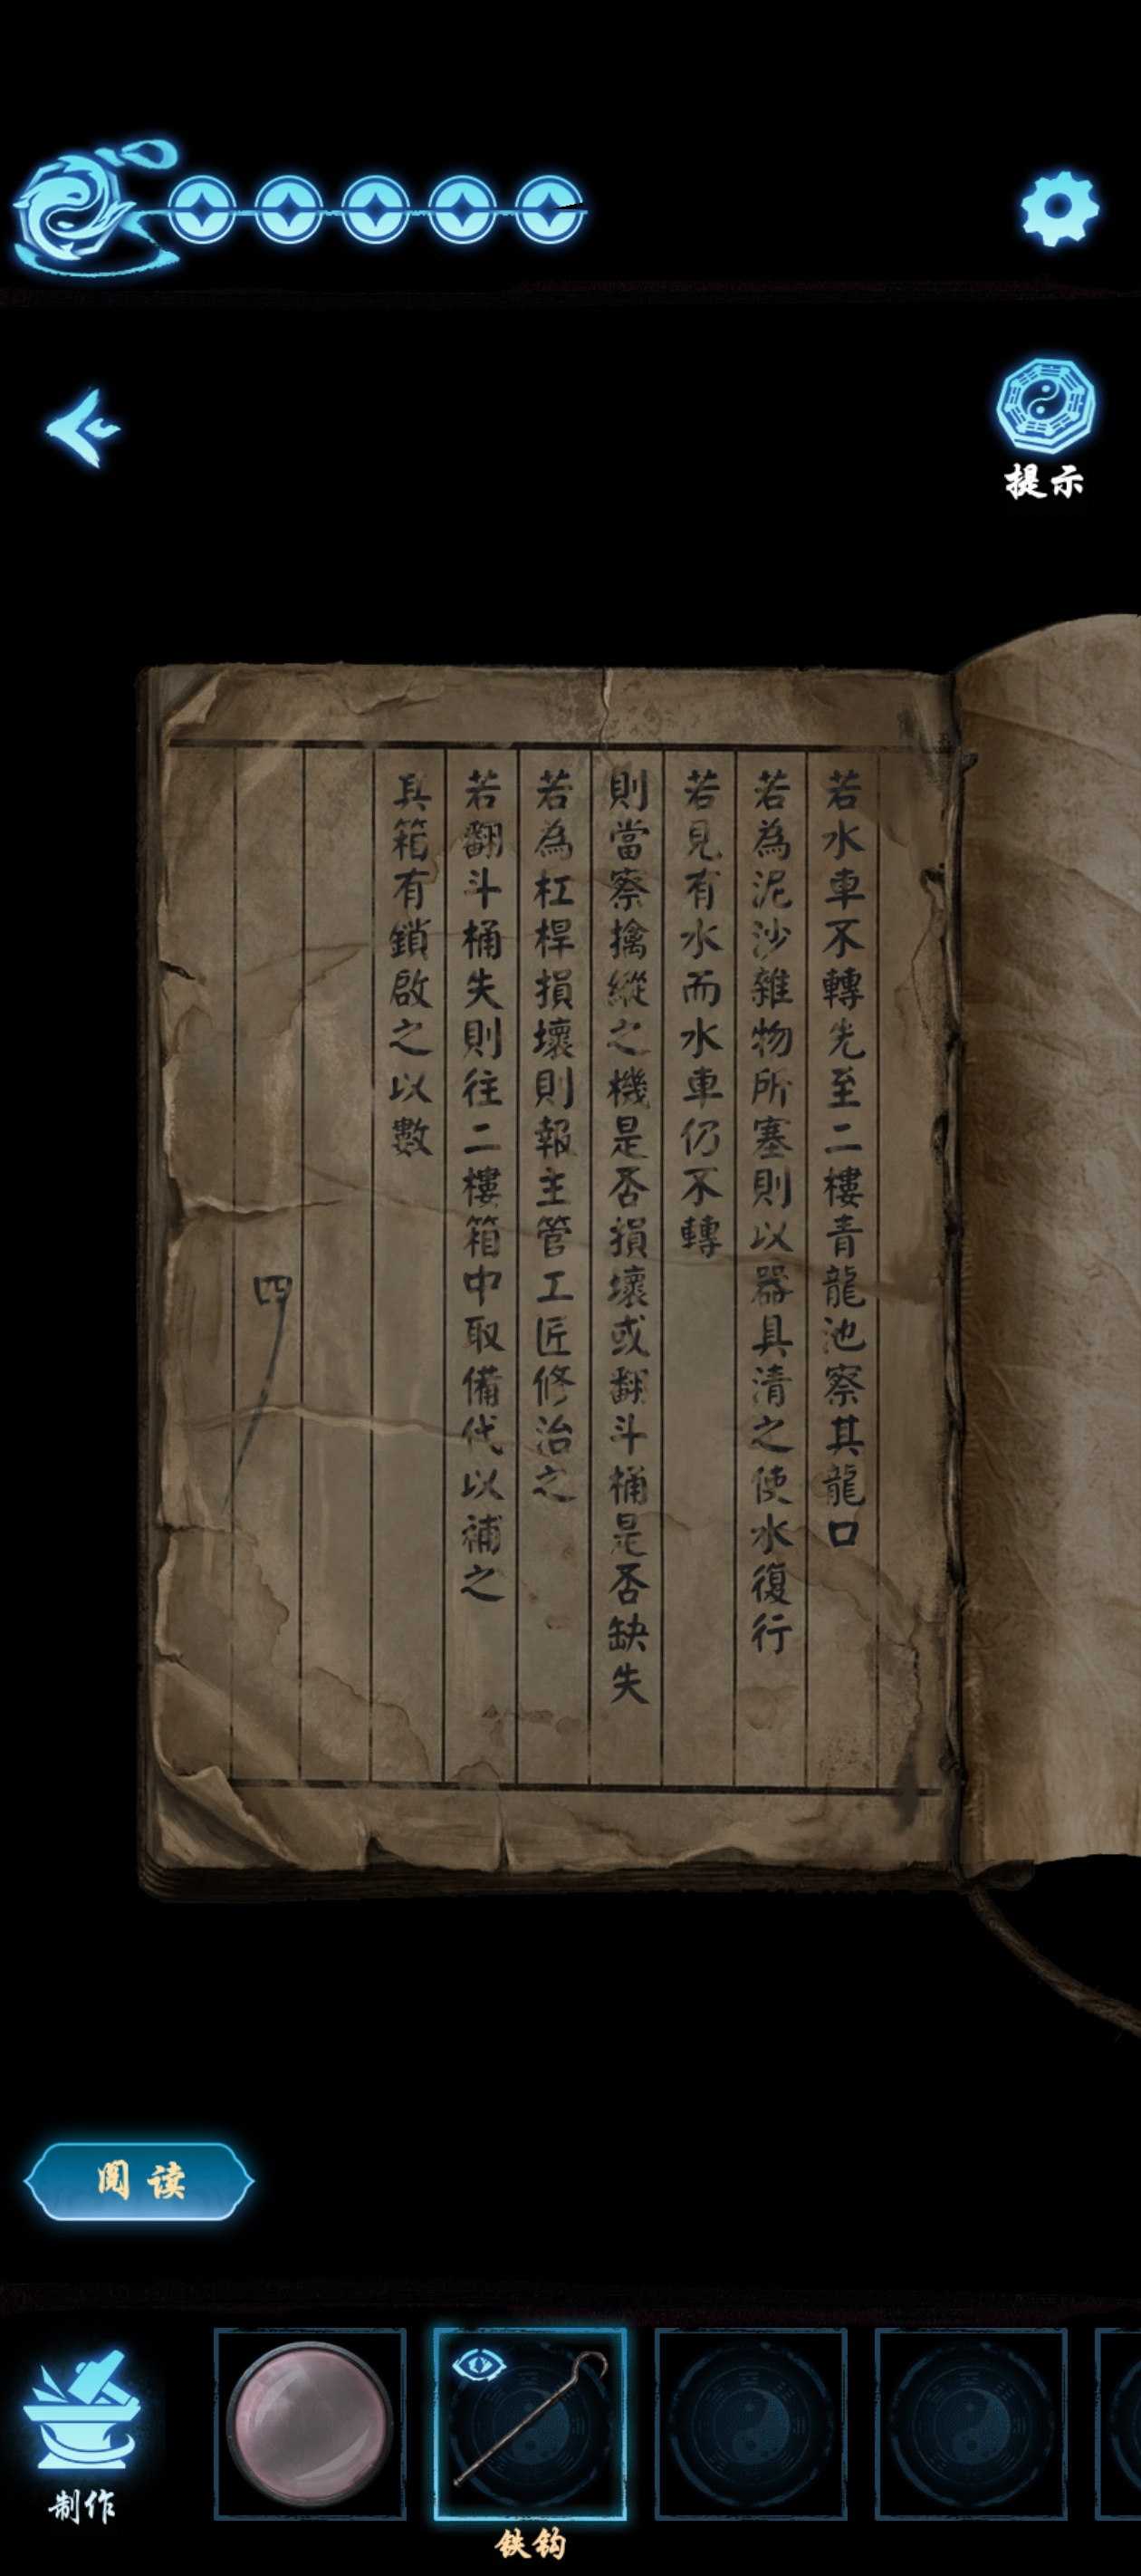 提示
若水車不轉先至二樓青龍池察其龍口
若為泥沙雜物所塞則以器具清之使水復行
若見有水而水車仍不轉
則當察擒縱之機是否損壞或翻斗桶是否缺失
若為杠桿損壞則報主管工匠修治之
若翻斗桶失則往二樓箱中取備代以補之
其箱有鎖啟之以數
四
阅读
制作
铁钩